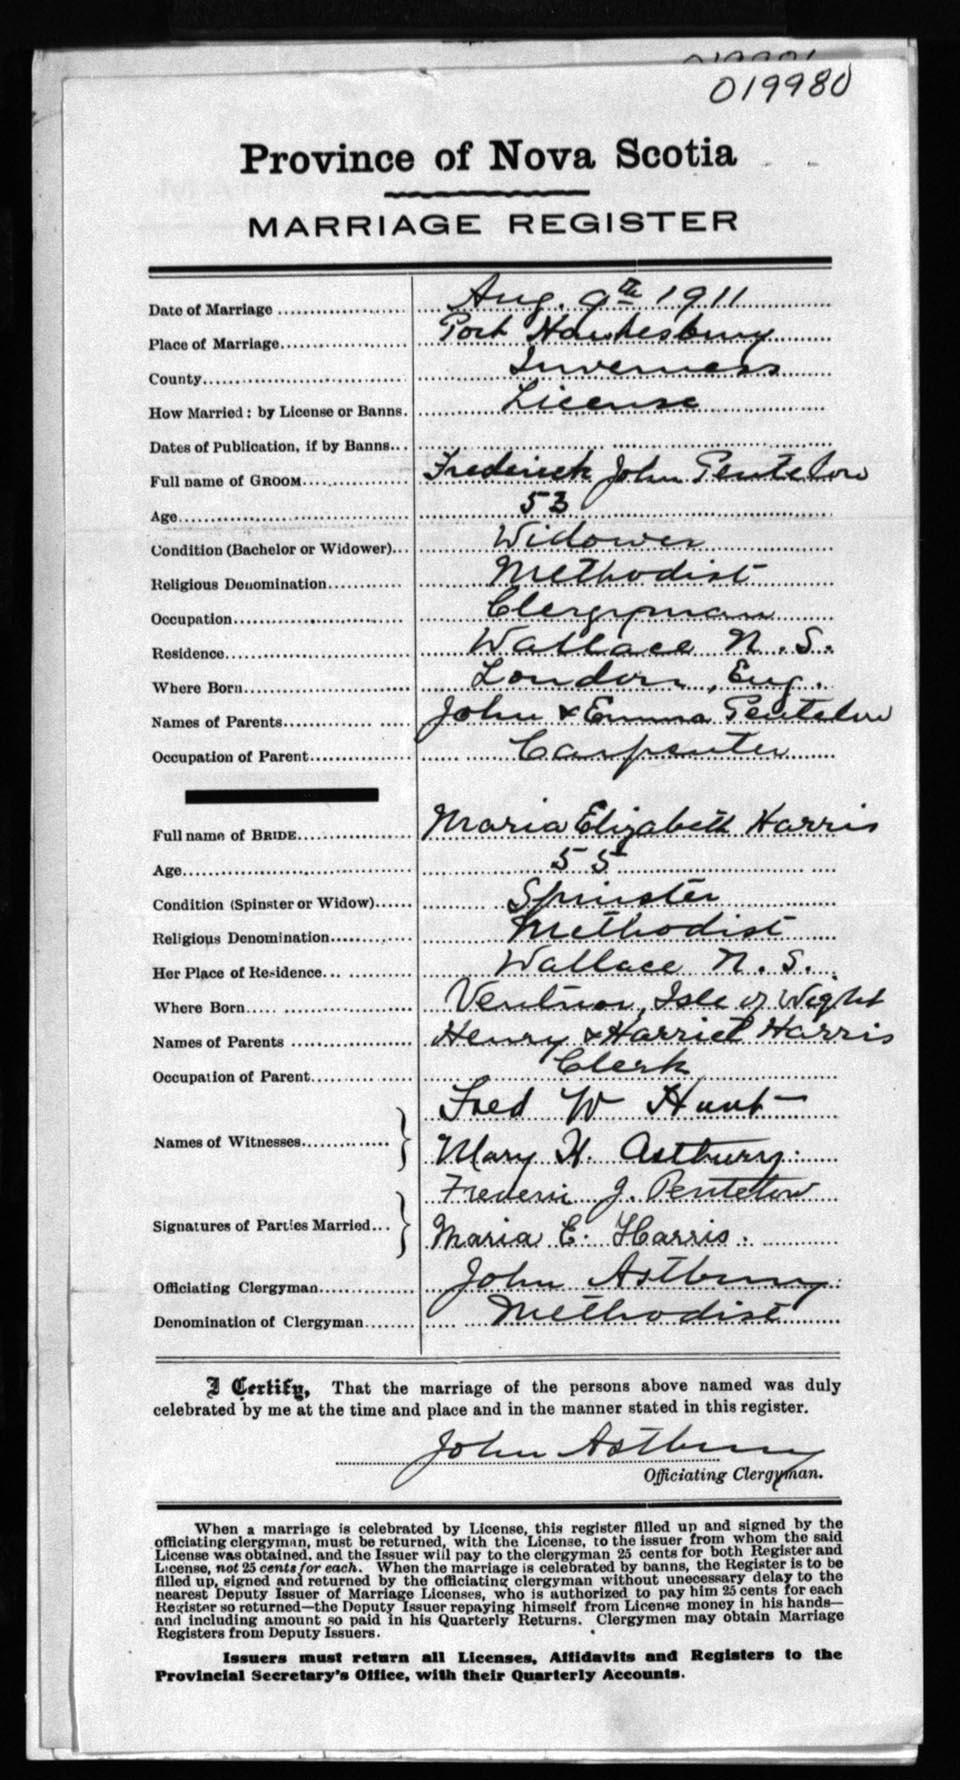 019980
Province of Nova Scotia
MARRIAGE REGISTER
Date of Marriage Aug. 9th 1911
Place of Marriage Port Hawkesbury
County Inverness
How Married: by License or Banns. License
Dates of Publication, if by Banns
Full name of GROOM Frederick John Pentelow
Age 53
Condition (Bachelor or Widower) Widower
Religious Denomination Methodist
Occupation Clergyman
Residence Wallace N. S.
Where Born London, Eng.
Names of Parents John & Emma Pentelow
Occupation of Parent Carpenter
Full name of BRIDE Maria Elizabeth Harris
Age 55
Condition (Spinster or Widow) Spinster
Religious Denomination Methodist
Her Place of Residence Wallace N. S.
Where Born Ventnor, Isle of Wight
Names of Parents Henry & Harriet Harris
Occupation of Parent Clerk
Names of Witnesses Fred W Hunt
Mary H. Astbury
Signatures of Parties Married Frederic J. Pentelow
Maria E. Harris.
Officiating Clergyman John Astbury
Denomination of Clergyman Methodist
I Certify, That the marriage of the persons above named was duly
celebrated by me at the time and place and in the manner stated in this register.
John Astbury
Officiating Clergyman.
When a marriage is celebrated by License, this register filled up and signed by the
officiating clergyman, must be returned, with the License, to the issuer from whom the said
License was obtained, and the Issuer will pay to the clergyman 25 cents for both Register and
License, not 25 cents for each. When the marriage is celebrated by banns, the Register is to be
filled up, signed and returned by the officiating clergyman without unecessary delay to the
nearest Deputy Issuer of Marriage Licenses, who is authorized to pay him 25 cents for each
Register so returned—the Deputy Issuer repaying himself from License money in his hands—
and including amount so paid in his Quarterly Returns. Clergymen may obtain Marriage
Registers from Deputy Issuers.
Issuers must return all Licenses, Affidavits and Registers to the
Provincial Secretary's Office, with their Quarterly Accounts.